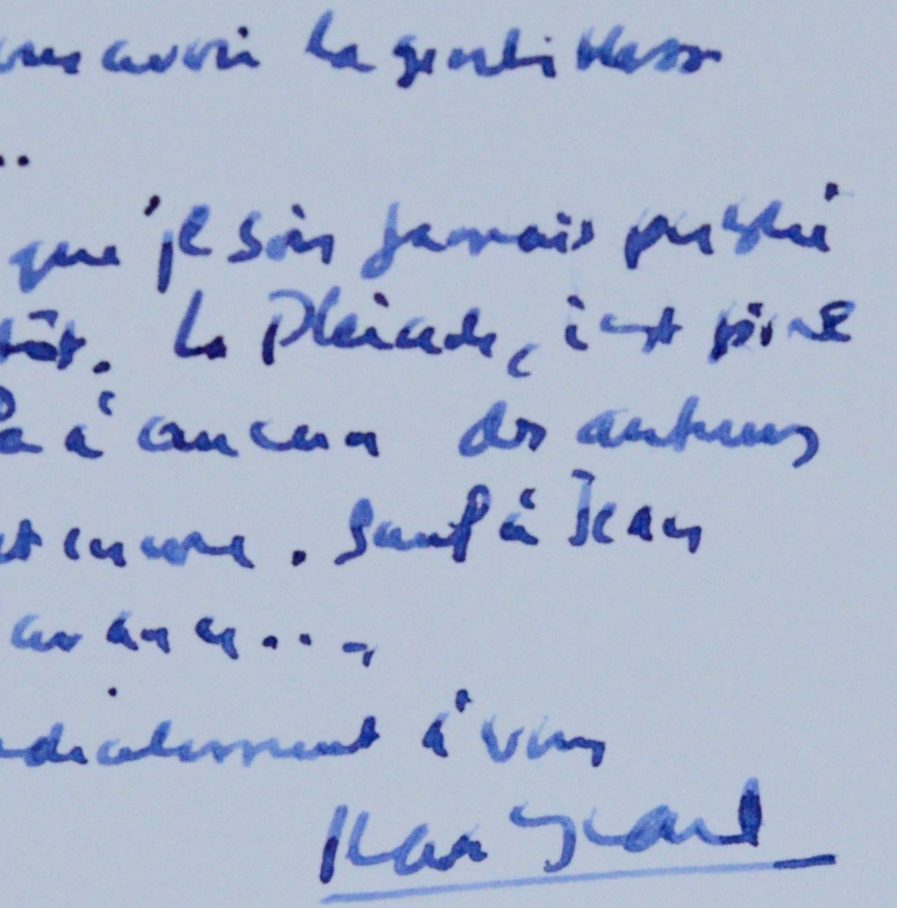 avoir la gentillesse
..
que je sois jamais publié
tôt. La Pléiade, c'est pire
à aucun des auteurs
encore. Sauf à Jean
avance...
dialement à vous